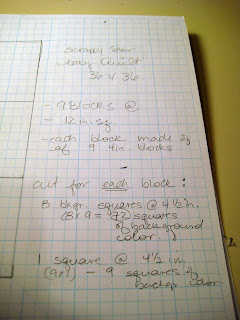 Scrappy Star
baby Quilt
36 x 36.
- 9 blocks @
- 12 in. sq.
- each block made of
of 9 4in. blocks
-
cut for each block:
8 bkgr. squares @ 4 1/2 in.
(8x9 = 72) squares
of background
color.
1 square @ 4 1/2 in
(9x1) - 9 squares of
color